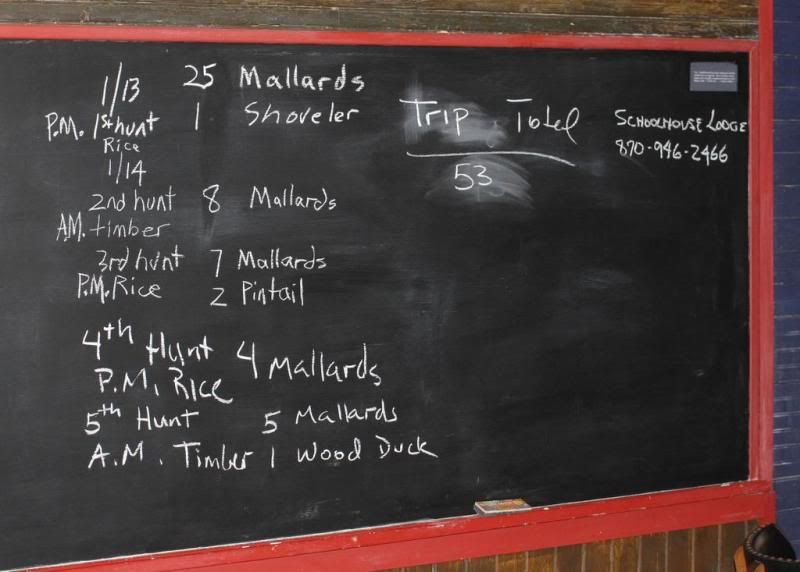 1/13 25 Mallards
P.M. 1st hunt 1 Shoveler
Rice
1/14
2nd hunt 8 Mallards
A.M. timber
3rd hunt 7 Mallards
P.M. Rice 2 Pintail
4th Hunt 4 Mallards
P.M. Rice
5th Hunt 5 Mallards
A.M. Timber 1 Wood Duck
Trip Totel
53
SCHOOLHOUSE LODGE
870-946-2466